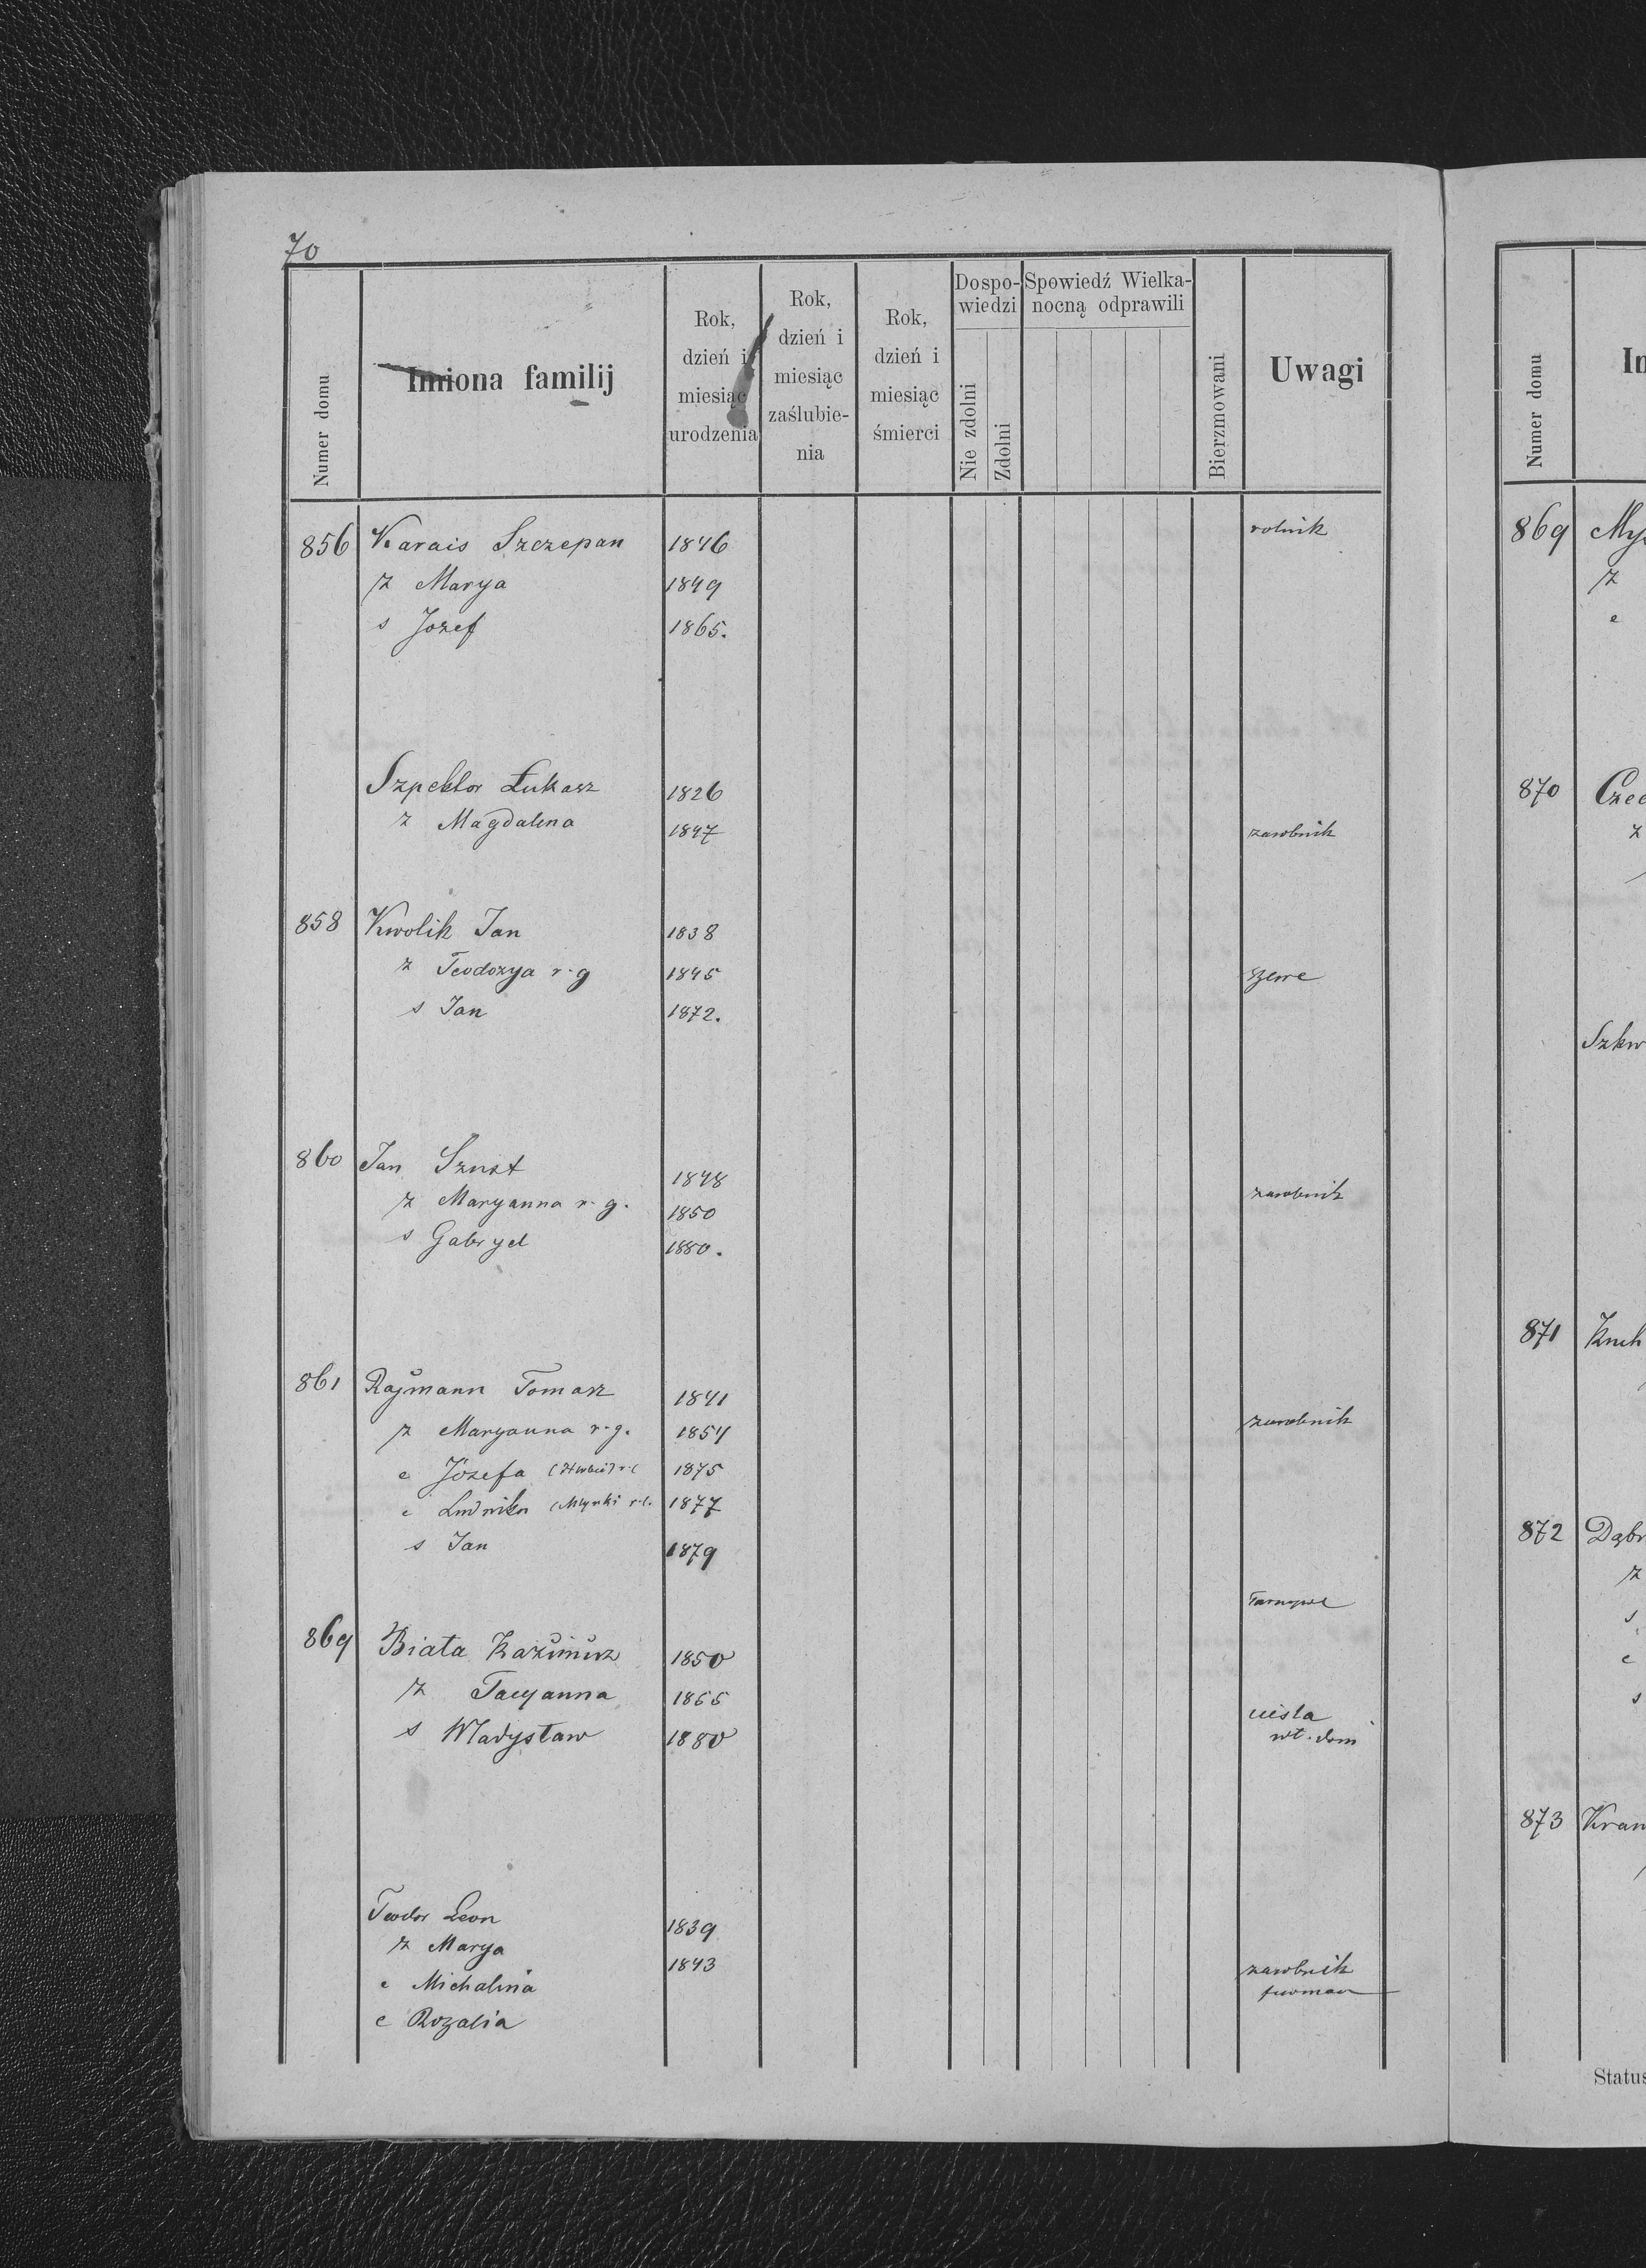 70
Numer domu
Imiona familij
Rok, dzień i miesiąc urodzenia
Rok, dzień i miesiąc zaślubie- nia
Rok, dzień i miesiąc śmierci
Dospo- wiedzi
Nie zdolni
Zdolni
Spowiedź Wielka- nocną odprawili
Bierzmowani
Uwagi
856 Karais Szczepan 1846 rolnik
ż Marya 1849
s Jozef 1865.
Szpektor Łukasz 1826
ż Magdalena 1847 zarobnik
858 Kwolik Jan 1838
ż Teodozya r. g 1845
s Jan 1872.
860 Jan Szust 1848
ż Maryanna r. g. 1850 zarobnik
s Gabryel 1880.
861 Rajmann Tomasz 1841
ż Maryanna r. g. 1854 zarobnik
c Józefa 1875
c Ludwika 1877
s Jan 1879
Tarnopol
869 Biała Kazimirz 1850
ż Tacyanna 1855
s Władysław 1880
cieśla
wł. dom
Teodor Leon 1839
ż Marya 1843 zarobnik
c Michalina furman
c Rozalia
Numer domu
869
ż
c
870
ż
871
872
ż
s
c
s
873
Status